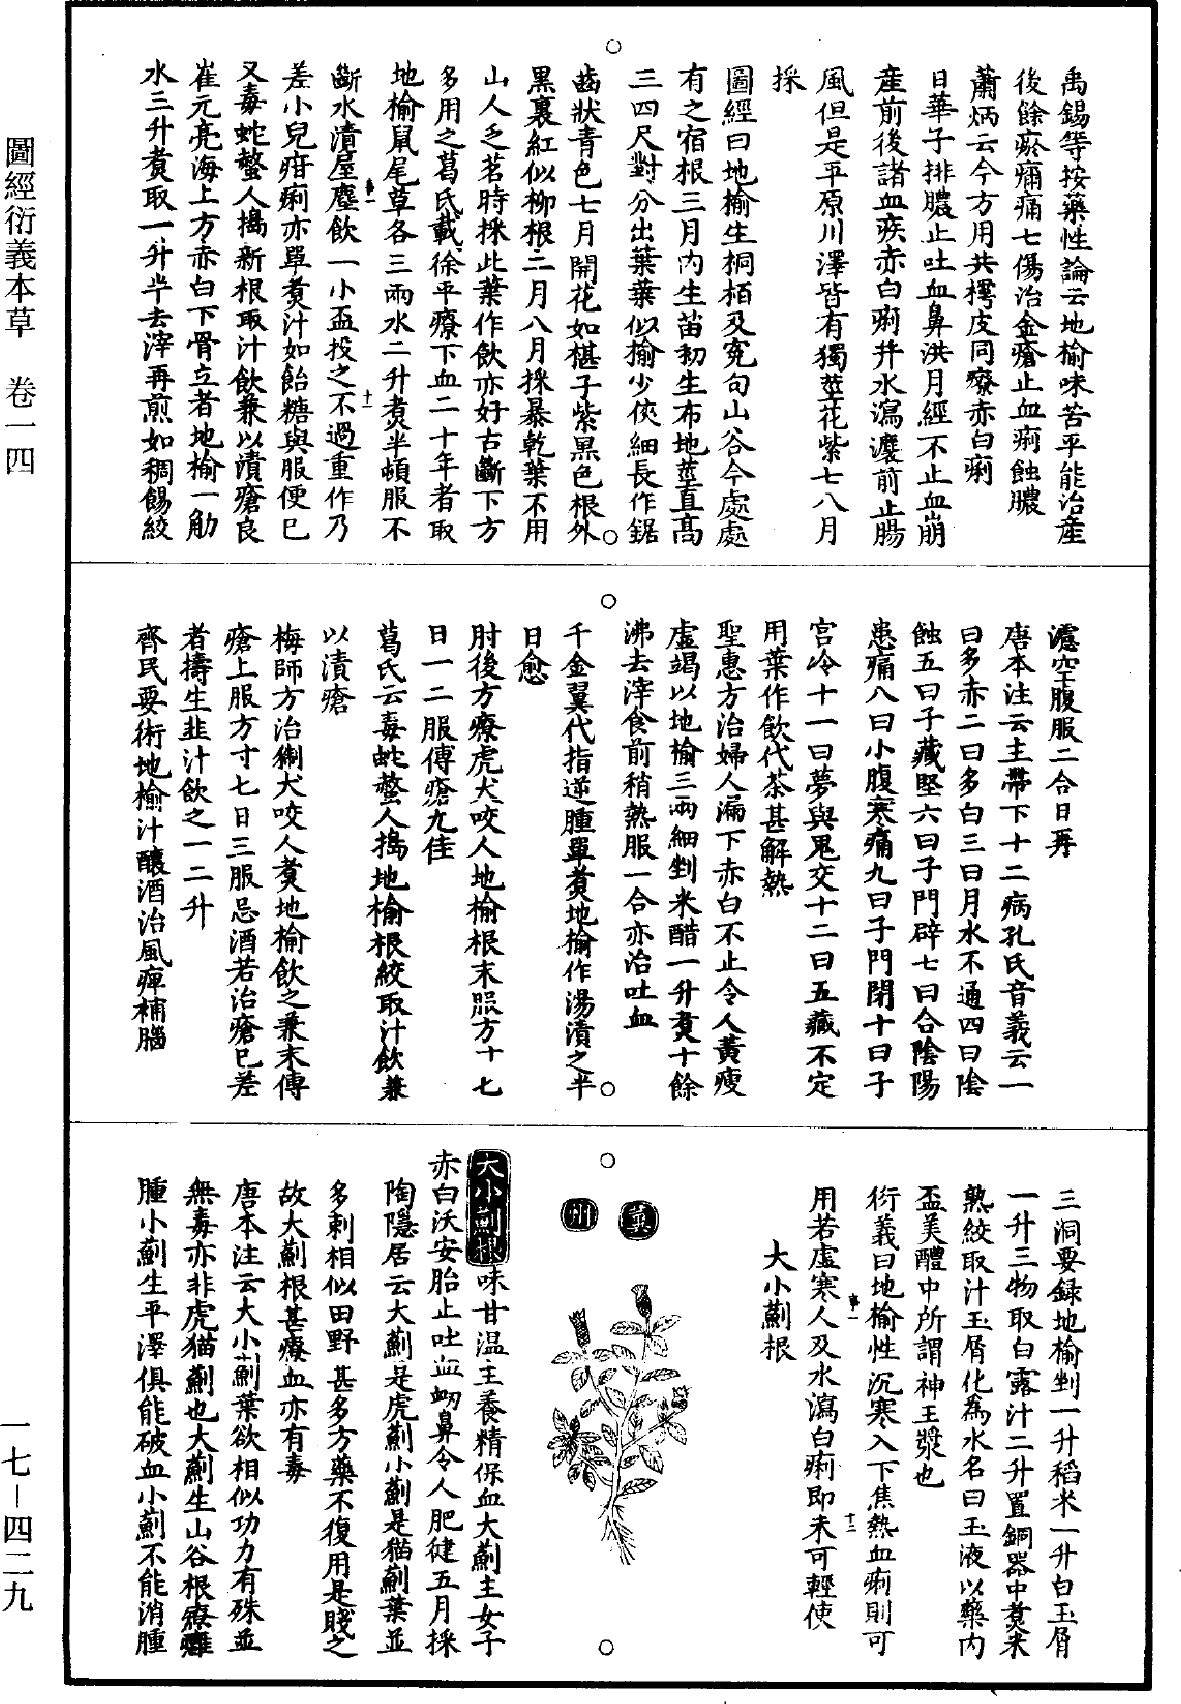 圖經衍義本草　卷一四
禹錫等按藥性論云地榆味苦平能治産
後餘瘀㾓痛七傷治金瘡止血痢蝕膿
蕭炳云今方用共樗皮同療赤白痢
日華子排膿止吐血鼻洪月經不止血崩
産前後諸血疾赤白痢并水瀉濃煎止腸
風但是平原川澤皆有獨莖花紫七八月
採
圖經曰地榆生桐栢及寃句山谷今處處
有之宿根三月内生苗初生布地莖直高
三四尺對分出葉葉似榆少俠細長作鋸
齒狀青色七月開花如椹子紫黑色根外
黑裏紅似柳根二月八月採暴乾葉不用
山人乏茗時採此葉作飲亦好古斷下方
多用之葛氏載徐平療下血二十年者取
地榆鼠尾草各三兩水二升煮半頓服不
斷水漬屋塵飲一小盃投之不過重作乃
差小兒疳痢亦單煮汁如飴糖與服便已
又毒蛇螫人搗新根取汁飲兼以漬瘡良
崔元亮海上方赤白下骨立者地榆一觔
水三升煮取一升半去滓再煎如稠餳絞
濾空腹服二合日再
唐本注云主帶下十二病孔氏音義云一
曰多赤二曰多白三曰月水不通四曰陰
蝕五曰子藏堅六曰子門辟七曰合陰陽
患痛八曰小腹寒痛九曰子門閉十曰子
宫冷十一曰夢與鬼交十二曰五藏不定
用葉作飲代茶甚解熱
聖惠方治婦人漏下赤白不止令人黃瘦
虛竭以地榆三兩細剉米醋一升煮十餘
沸去滓食前稍熱服一合亦治吐血
千金翼代指逆腫單煮地榆作湯漬之半
日愈
肘後方療虎犬咬人地榆根末服方寸七
日一二服傅瘡尤佳
葛氏云毒蛇螫人搗地榆根絞取汁飲兼
以漬瘡
梅師方治猘犬咬人煮地榆飲之兼末傅
瘡上服方寸七日三服忌酒若治瘡已差
者擣生韭汁飲之一二升
齊民要術地榆汁釀酒治風痺補腦
三洞要録地榆剉一升稻米一升白玉屑
一升三物取白露汁二升置銅器中煮米
熟絞取汁玉屑化為水名曰玉液以藥内
盃美醴中所謂神王漿也
衍義曰地榆性沉寒入下焦熱血痢則可
用若虛寒人及水瀉白痢即未可輕使
大小薊根
冀
州
大小薊根味甘温主養精保血大薊主女子
赤白沃安胎止吐血衂鼻令人肥健五月採
陶隱居云大薊是虎薊小薊是猫薊葉並
多刺相似田野甚多方藥不復用是賤之
故大薊根甚療血亦有毒
唐本注云大小薊葉欲相似功力有殊並
無毒亦非虎猫薊也大薊生山谷根療癰
腫小薊生平澤俱能破血小薊不能消腫
一七－四二九